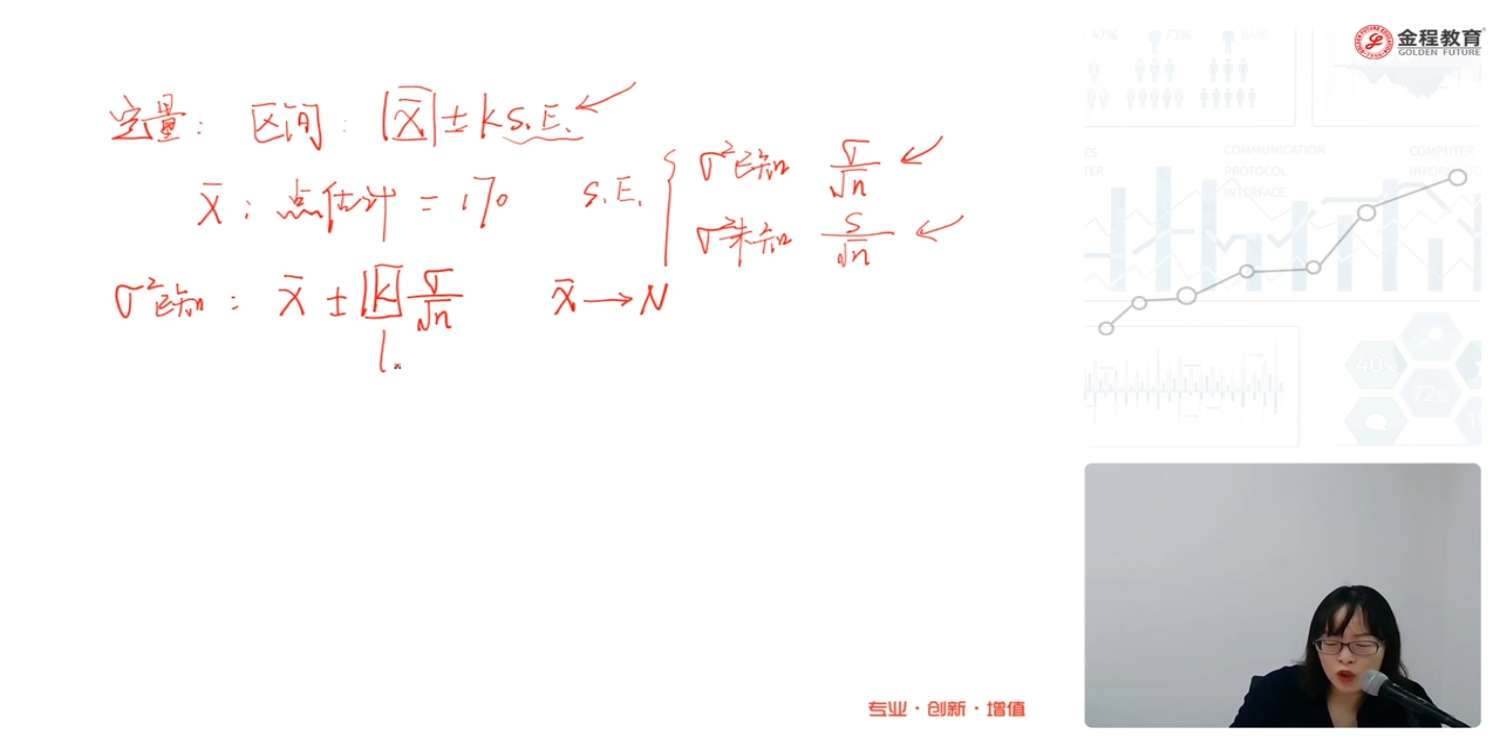 金程教育
GOLDEN FUTURE
定量: 区间: |X̄| ± k S.E.
X̄: 点估计 = 170
S.E. { σ²已知 σ/√n
σ²未知 S/√n
σ²已知: X̄ ± k σ/√n X̄ → N
1.
COMMUNICATION
PROTOCOL
INTERFACE
COMPUTER
40%
72%
专业·创新·增值